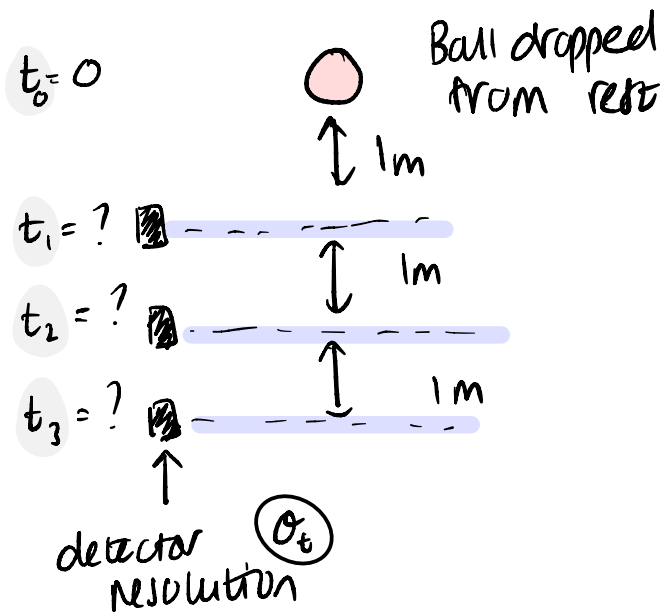 t₀ = 0
Ball dropped
from rest
1m
t₁ = ?
1m
t₂ = ?
1m
t₃ = ?
detector
resolution
σₜ